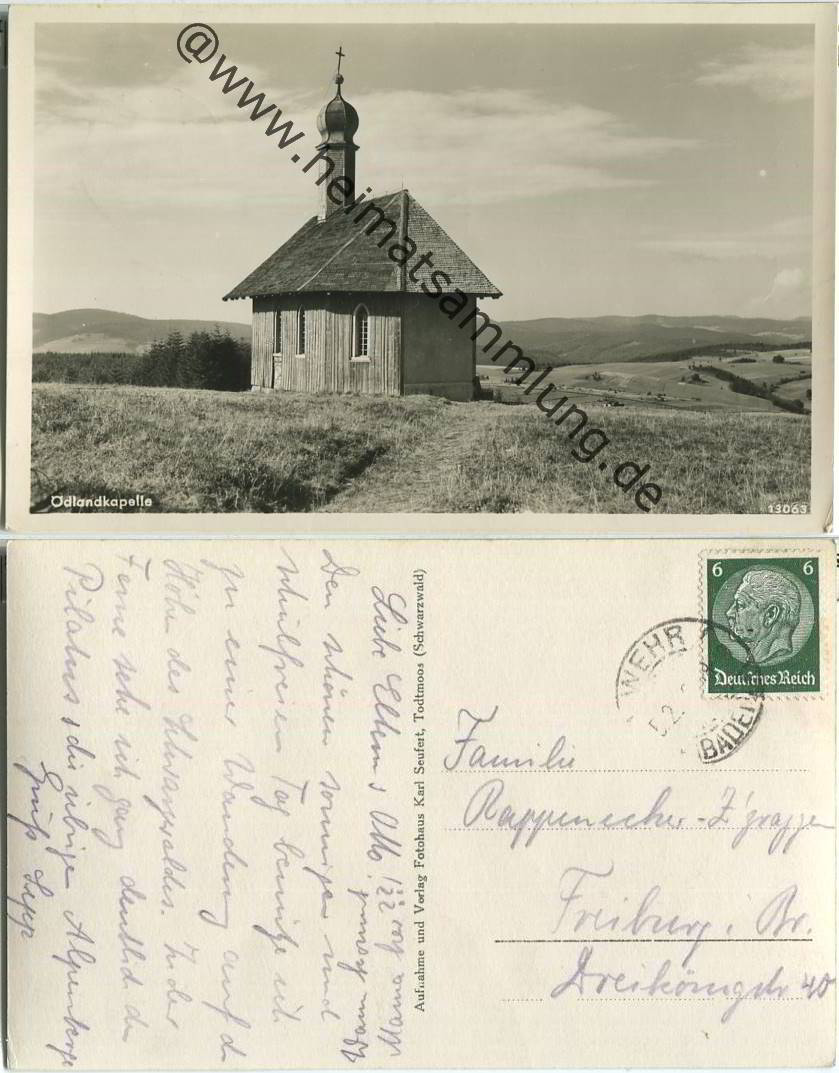 @www.heimatsammlung.de
Ödlandkapelle
13063
Liebe Eltern & Otto!
Den schönen sonnigen und
schulfreien Tag benütze ich
zu einer Wanderung auf d
Höhe des Schwarzwaldes. In der
Ferne sehe ich ganz deutlich den
Pilatus & die übrigen Alpenberge
Gruß Sepp
Aufnahme und Verlag Fotohaus Karl Seufert, Todtmoos (Schwarzwald)
6 6
Deutsches Reich
WEHR
BADEN
Familie
Rappenecker-Z'graggen
Freiburg i. Br.
Dreikönigstr 40